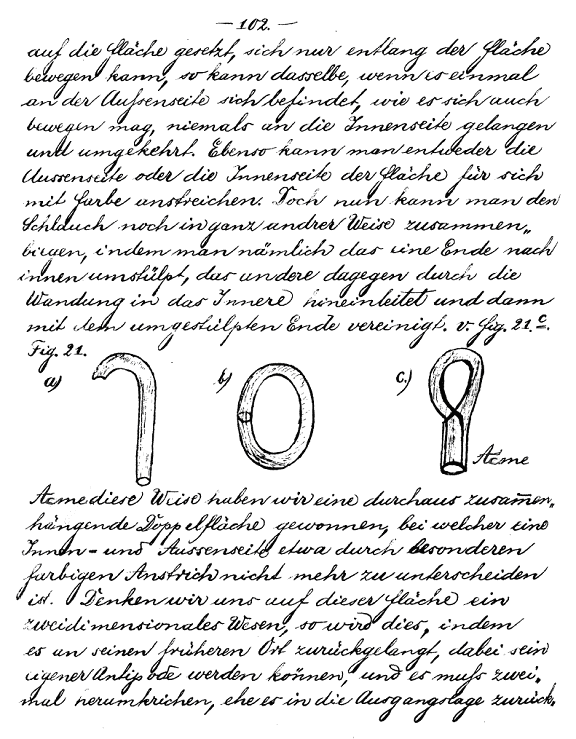 — 102. —
auf die Fläche gesetzt, sich nur entlang der Fläche
bewegen kann, so kann dasselbe, wenn es einmal
an der Außenseite sich befindet, wie es sich auch
bewegen mag, niemals an die Innenseite gelangen
und umgekehrt. Ebenso kann man entweder die
Aussenseite oder die Innenseite der Fläche für sich
mit Farbe anstreichen. Doch nun kann man den
Schlauch noch in ganz andrer Weise zusammen„
biegen, indem man nämlich das eine Ende nach
innen umstülpt, das andere dagegen durch die
Wandung in das Innere hineinleitet und dann
mit dem umgestülpten Ende vereinigt. v. Fig. 21.c.
Fig. 21.
a) b) c.)
Acme
Acme diese Weise haben wir eine durchaus zusam̅en„
hängende Doppelfläche gewonnen, bei welcher eine
Innen- und Aussenseite etwa durch besonderen
farbigen Anstrich nicht mehr zu unterscheiden
ist. Denken wir uns auf dieser Fläche ein
zweidimensionales Wesen, so wird dies, indem
es an seinen früheren Ort zurückgelangt, dabei sein
eigener Antipode werden können, und es muß zwei„
mal herumkrichen, ehe es in die Ausgangslage zurück„